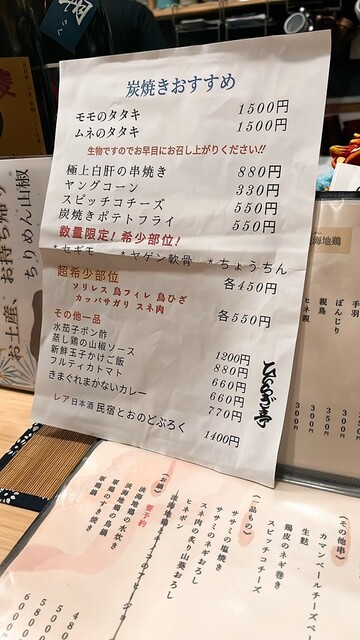 炭焼きおすすめ
モモのタタキ 1500円
ムネのタタキ 1500円
生物ですのでお早目にお召し上がりください!!
極上白肝の串焼き 880円
ヤングコーン 330円
スピッチコチーズ 550円
炭焼きポテトフライ 550円
数量限定! 希少部位!
*セギモ *ヤゲン軟骨 *ちょうちん
各450円
超希少部位
ソリレス 鳥フィレ 鳥ひざ
カッパサガリ スネ肉
各550円
その他一品
水茄子ポン酢
蒸し鶏の山椒ソース 1200円
新鮮玉子かけご飯 880円
フルティカトマト 660円
きまぐれまかないカレー 660円
770円
レア日本酒 民宿とおのどぶろく 1400円
お土産、お持ち帰り
ちりめん山椒
海地鶏
手羽
ぼんじり
親鳥
ヒネ親
(その他串)
カマンベールチーズベ
生麩
鶏皮のネギ巻き
スピッチコチーズ
(一品もの)
ササミの塩焼き
ササミのネギおろし
スネ肉の炙り山葵おろし
ヒネポン
(お鍋) 要予約
淡海地鶏の水炊き
淡海地鶏の鳥鍋
軍鶏鍋
軍鶏のすき焼き